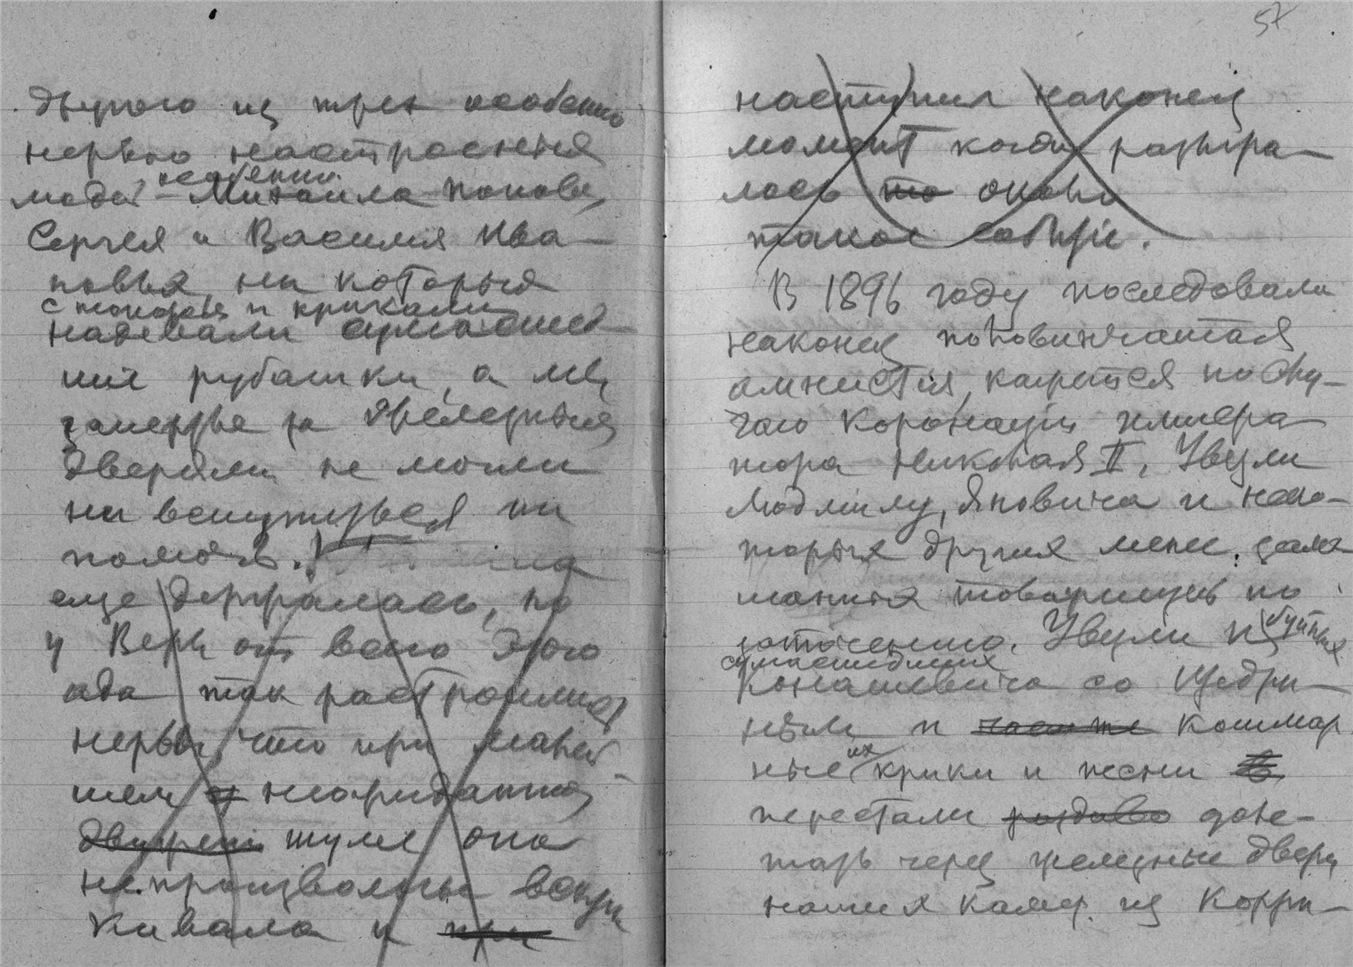 другого из трех особенно
нервно настроенных
людей - особенно Михаила Попова,
Сергея и Василия Ива-
новых на которых
с топотом и криками
надевали сумасшед-
шие рубашки, а мы
запертые за железными
дверями не могли
ни вступиться ни
помочь.
еще держалась, но
у Веры от всего этого
ада так растроились
нервы, что при малей-
шем неожиданном
двухреш шуме она
непроизвольно вскри
кивала и при
57
наступил наконец
момент когда разыгра-
лось то опять
такое
В 1896 году последовали
наконец половинчатая
амнистия, кажется по слу-
чаю коронации импера
тора Николая II. Увезли
Людмилу, Яновича и неко-
торых других менее
товарищей по
заточению. Увезли и буйных
сумасшедших
Конашевича со Щедри-
ным и кошмар
ные их крики и песни
перестали доле-
тать через железные двери
наших камер из корри-